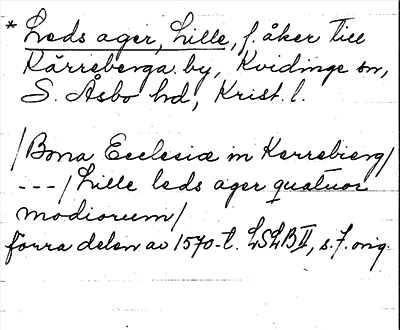 * Leds ager, Lille, f. åker till
Kärreberga by, Kvidinge sn,
S. Åsbo hd, Krist. l.
/Bona Ecclesiæ in Kerrebierg/
---/Lille leds ager quatuor
modiorum/
förra delen av 1570-t. LSLB II, s. 7. orig.